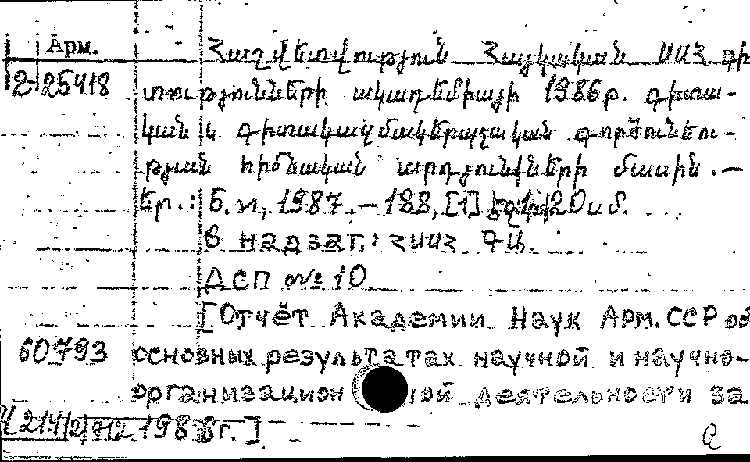 Арм.
2-25418
Հաշվետվություն Հայկական ՍՍՀ գի
տությունների ակադեմիայի 1986թ. գիտա-
կան և գիտակազմակերպչական գործունեու-
թյան հիմնական արդյունքների մասին. —
Եր. : Б.и, 1987. — 188, [1] էջ; 20սմ.
В надзаг.: ՀՍՍՀ ԳԱ.
ДСП № 10
[Отчёт Академии Наук Арм. ССР об
60793 основных результатах научной и научно-
организацион ной деятельности за
1986г.]